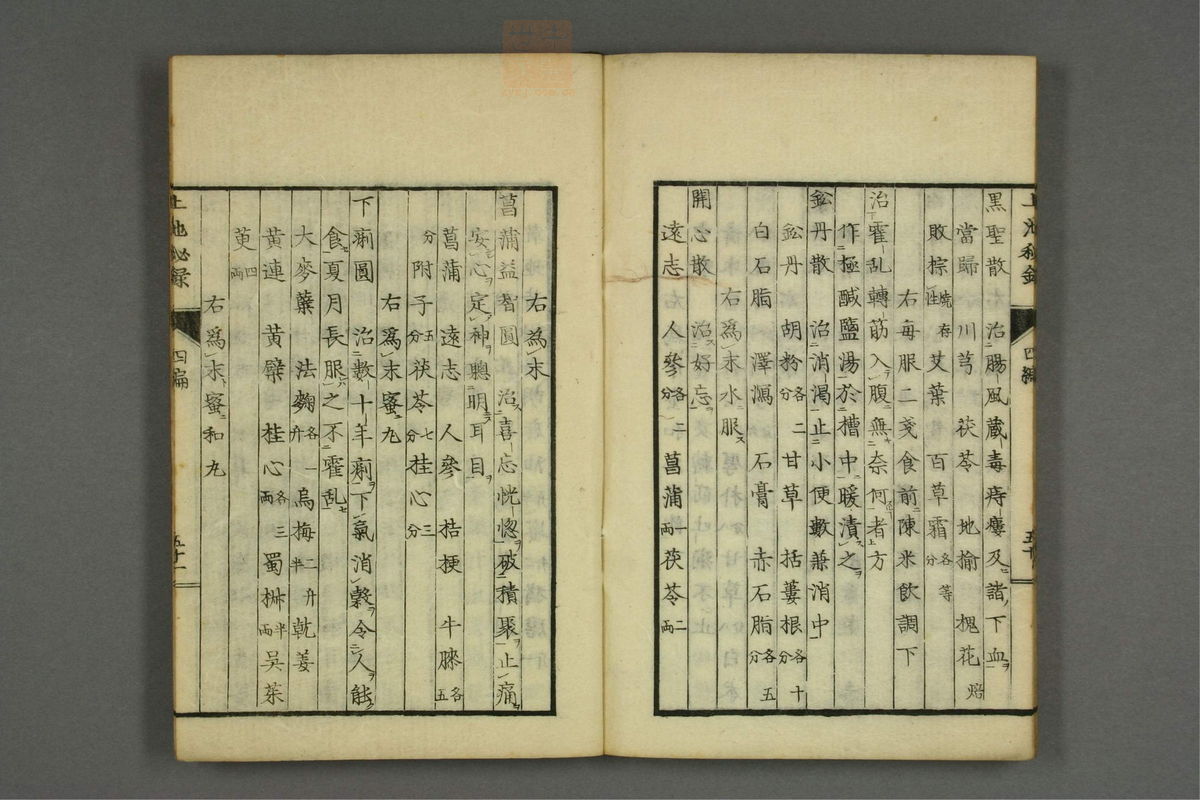 黒聖散　治腸風蔵毒痔瘻及諸下血
當歸　川芎　茯苓　地榆　槐花焰
敗棕燒存性　艾葉　百草霜各等分
右每服二戔食前陳米飲調下
治霍乱轉筋入腹無奈何者方
作極醎鹽湯於槽中暖漬之
鈆丹散　治消渴止小便數兼消中
鈆丹　胡粉各二分　甘草　括蔞根各十分
白石脂　澤瀉　石膏　赤石脂各五分
右為末水服
開心散　治好忘
遠志　人參各二分　菖蒲一両　茯苓二両
上池秘録　四編　五十
右為末
菖蒲益智圓　治喜忘恍惚破積聚止痛
安心定神聰明耳目
菖蒲　遠志　人參　桔梗　牛膝各五
分　附子五分　茯苓七分　桂心三分
右為末蜜丸
下痢圓　治數十年痢下氣消穀令人能
食夏月長服之不霍乱
大麥蘗　法麴各一升　烏梅二升半　乾姜
黄連四両　黄檗　桂心各三両　蜀椒半両　吳茱
萸四両
右為末蜜和丸
上池秘録　四編　五十一